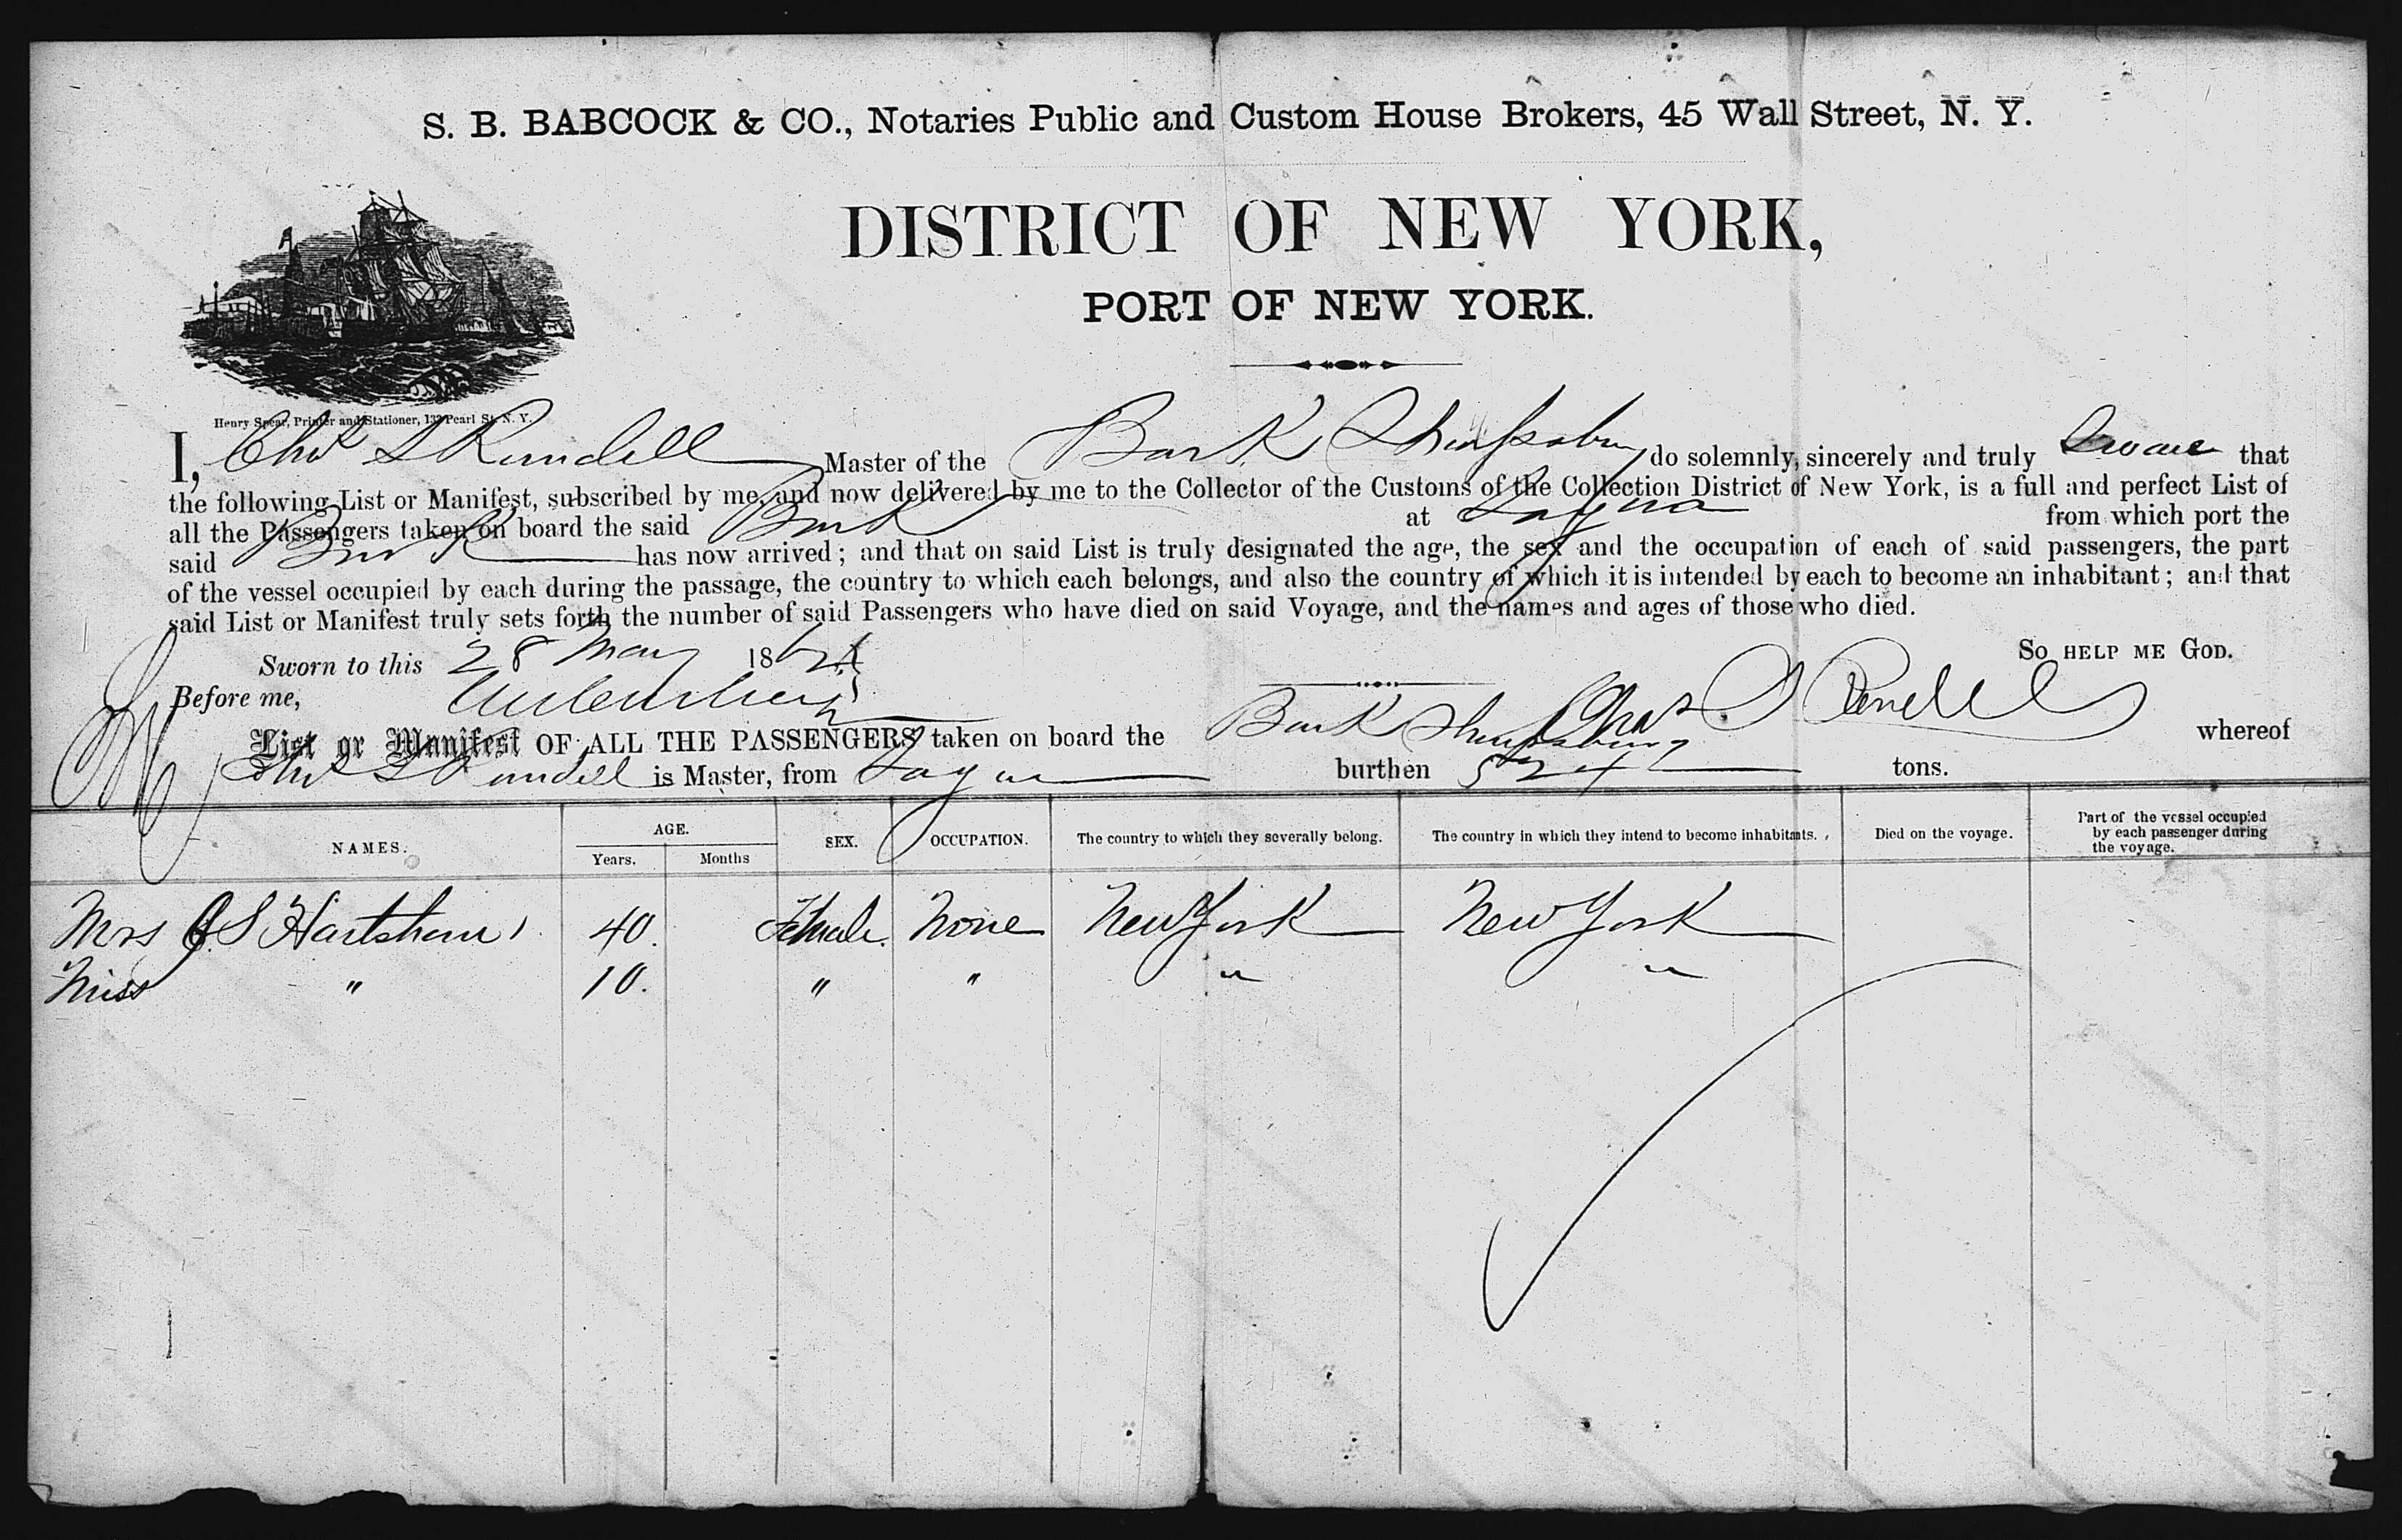 S. B. BABCOCK & CO., Notaries Public and Custom House Brokers, 45 Wall Street, N. Y.
DISTRICT OF NEW YORK,
PORT OF NEW YORK.
Henry Spear, Printer and Stationer, 132 Pearl St. N. Y.
I, Chas S Rundell Master of the Bark do solemnly, sincerely and truly Swear that
the following List or Manifest, subscribed by me, and now delivered by me to the Collector of the Customs of the Collection District of New York, is a full and perfect List of
all the Passengers taken on board the said Bark at Sagua from which port the
said Bark has now arrived; and that on said List is truly designated the age, the sex and the occupation of each of said passengers, the part
of the vessel occupied by each during the passage, the country to which each belongs, and also the country of which it is intended by each to become an inhabitant; and that
said List or Manifest truly sets forth the number of said Passengers who have died on said Voyage, and the names and ages of those who died.
SO HELP ME GOD.
Sworn to this 28 May 186
Before me,
Chas S Rundell
List or Manifest OF ALL THE PASSENGERS taken on board the Bark whereof
Chas S Rundell is Master, from Sagua burthen 524 tons.
NAMES. AGE. Years. Months SEX. OCCUPATION. The country to which they severally belong. The country in which they intend to become inhabitants. Died on the voyage. Part of the vessel occupied by each passenger during the voyage.
Mrs J S Hartshorn 40. Female. None New York New York
Miss " 10. " " " "